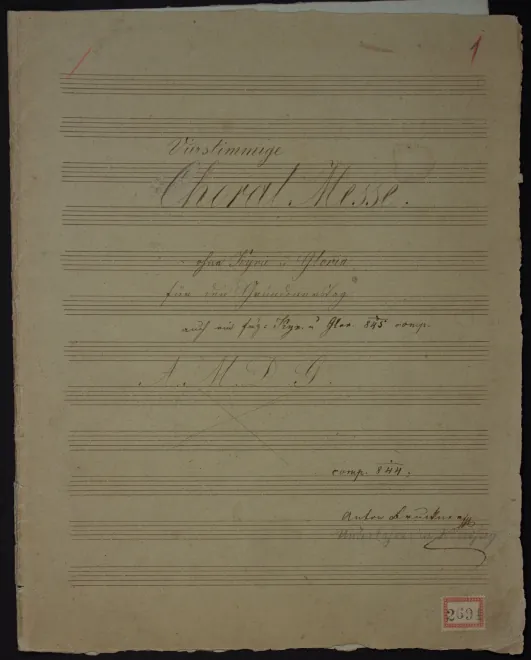 1
Vierstimmige
Choral Messe.
ohne Kyrie u Gloria
für den Gründonnerstag
auch ein Kyr. u Glor. 845 comp.
A. M. D. G.
comp. 844.
Anton Bruckner
2691